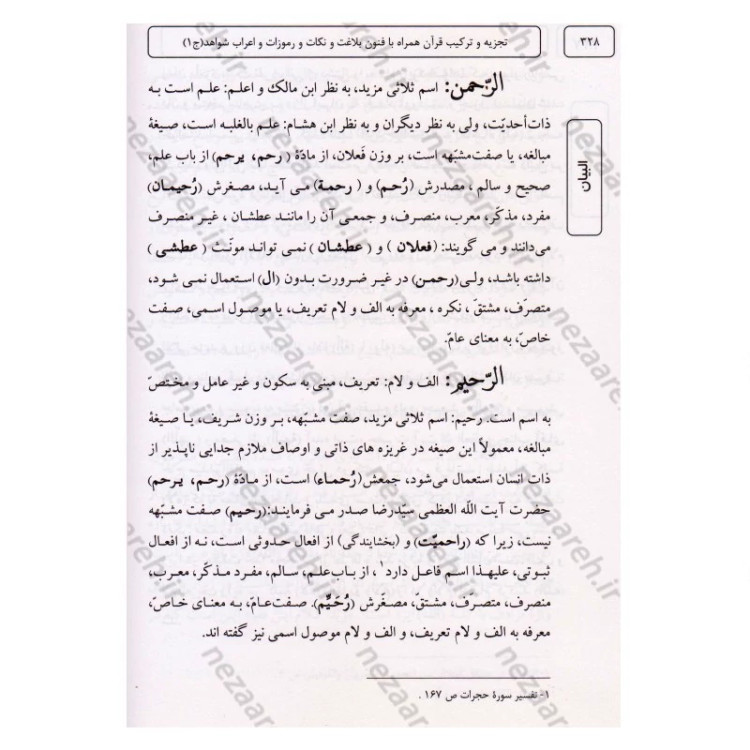 ۳۲۸
تجزیه و ترکیب قرآن همراه با فنون بلاغت و نکات و رموزات و اعراب شواهد(ج۱)
البیان
الرّحمن: اسم ثلاثی مزید، به نظر ابن مالک و اعلم: علم است به
ذات‌أحدیّت، ولی به نظر دیگران و به نظر ابن هشام: علم بالغلبه است، صیغۀ
مبالغه، یا صفت‌مشبّهه است، بر وزن فَعلان، از مادّۀ (رحم، یرحم) از باب علم،
صحیح و سالم ، مصدرش (رُحم) و ( رحمة) می آید، مصغرش (رُحیمان)
مفرد، مذکّر، معرب، منصرف، و جمعی آن را مانند عطشان ، غیر منصرف
می‌دانند و می گویند: (فعلان ) و ( عطشان ) نمی تواند مونّث ( عطشی )
داشته باشد، ولی(رحمن) در غیر ضرورت بدون (ال) استعمال نمی شود،
متصرّف، مشتقّ ، نکره ، معرفه به الف و لام تعریف، یا موصول اسمی، صفت
خاصّ، به معنای عامّ.
الرّحیم: الف و لام: تعریف، مبنی به سکون و غیر عامل و مختصّ
به اسم است. رحیم: اسم ثلاثی مزید، صفت مشبّهه، بر وزن شریف، یا صیغۀ
مبالغه، معمولاً این صیغه در غریزه های ذاتی و اوصاف ملازم جدایی ناپذیر از
ذات انسان استعمال می‌شود، جمعش(رُحماء) است، از مادّۀ (رحم، یرحم)
حضرت آیت اللّه العظمی سیّدرضا صدر می فرمایند:(رحیم) صفت مشبّهه
نیست، زیرا که (راحمیّت) و (بخشایندگی) از افعال حدوثی است، نه از افعال
ثبوتی، علیهذا اسم فاعل دارد۱، از باب‌علم، سالم، مفرد مذکّر، معرب،
منصرف، متصرّف، مشتقّ، مصغّرش (رُحَیِّم). صفت‌عامّ، به معنای خاصّ،
معرفه به الف و لام تعریف، و الف و لام موصول اسمی نیز گفته اند.
۱- تفسیر سورۀ حجرات ص ۱۶۷ .
nezaareh.ir